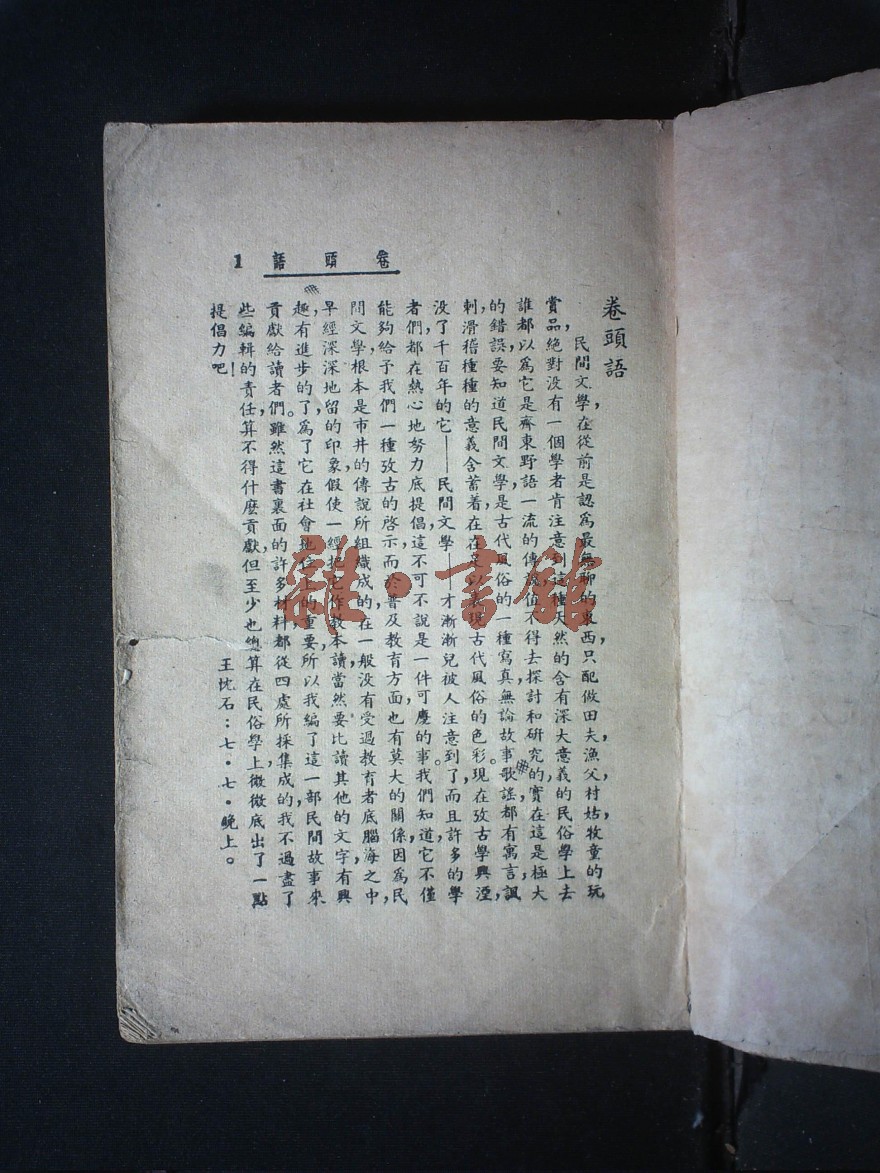 卷頭語 1
卷頭語
民間文學,在從前是認爲最無聊的東西,只配做田夫,漁父,村姑,牧童的玩
賞品,絕對没有一個學者肯注意到這種天然的含有深大意義的民俗學上去
誰都以爲它是齊東野語一流的傳說,值不得去探討和研究的,實在這是極大
的錯誤,要知道民間文學,是古代風俗的一種寫真,無論故事歌謠,都有寓言,諷
刺,滑稽種種的意義含蓄着,在在足以表現古代風俗的色彩。現在攷古學興,湮
没了千百年的它——民間文學——才漸漸兒被人注意到了,而且許多的學
者們,都在熱心地努力底提倡,這不可不說是一件可慶的事。我們知道,它不僅
能夠給予我們一種攷古的啓示,而於普及教育方面,也有莫大的關係,因爲民
間文學,根本是市井的傳說所組織成的,在一般没有受過教育者底腦海之中,
早經深深地留的印象,假使一經把它作教本讀,當然要比讀其他的文字有興
趣,有進步的了,爲了它在社會地位上的重要,所以我編了這一部民間故事來
貢獻給讀者們。雖然這書裏面的許多材料,都從四處所採集成的,我不過盡了
些編輯的責任,算不得什麽貢獻,但至少也總算在民俗學上微微底出了一點
提倡力吧!
王忱石:七·七·晚上。
雜·書館